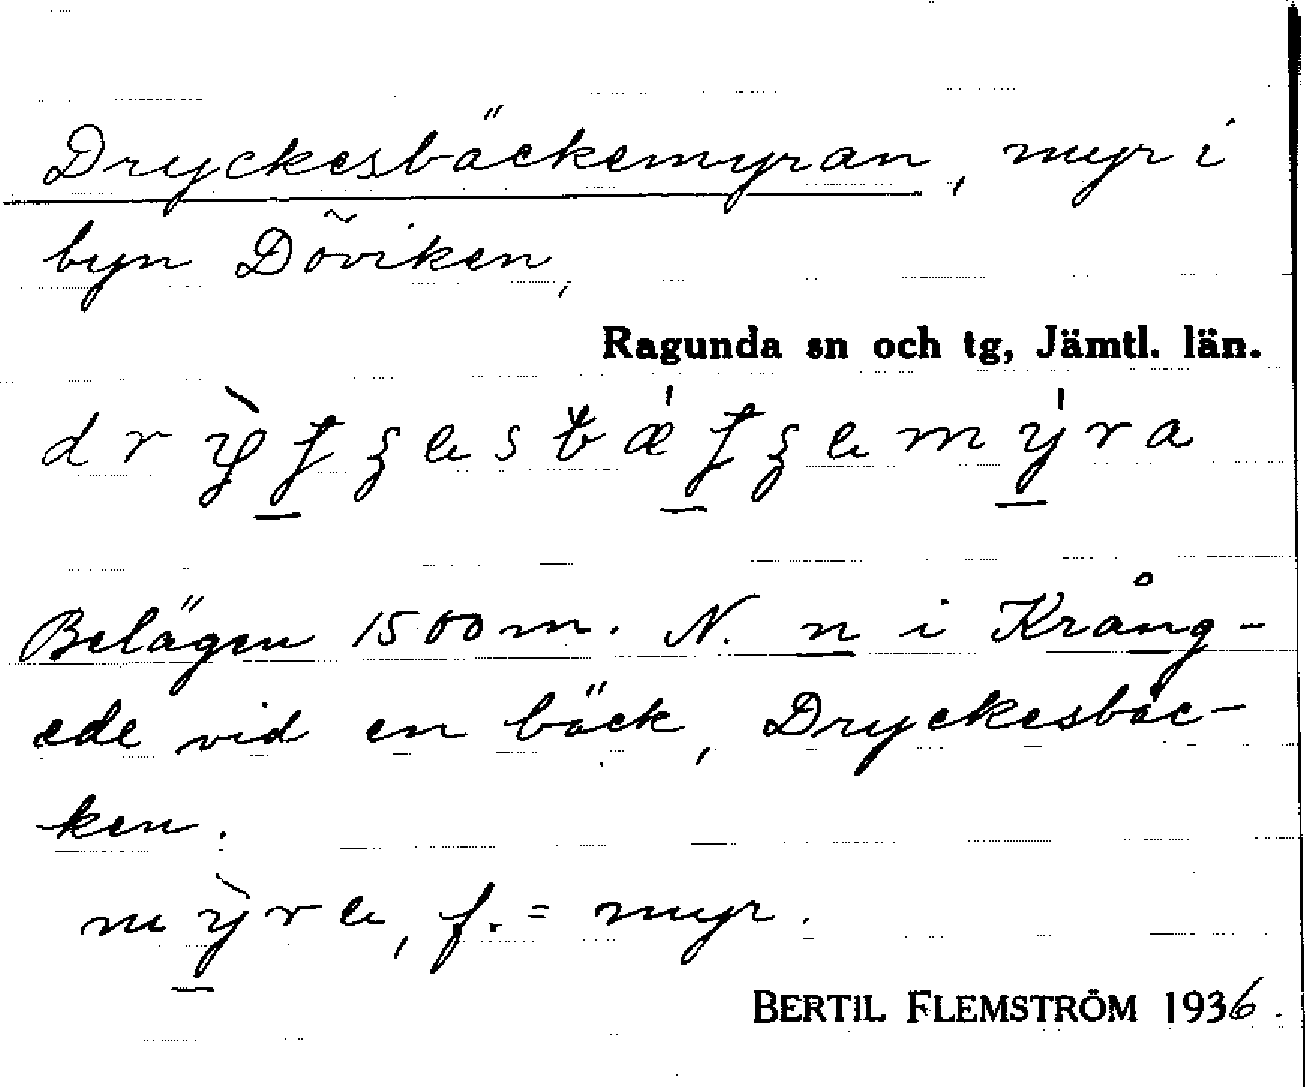 Dryckesbäckemyran, myr i
byn Döviken,
Ragunda sn och tg, Jämtl. län.
Belägen 1500 m. N. n i Krång-
ede vid en bäck, Dryckesbäc-
ken.
f. = myr.
BERTIL FLEMSTRÖM 1936.